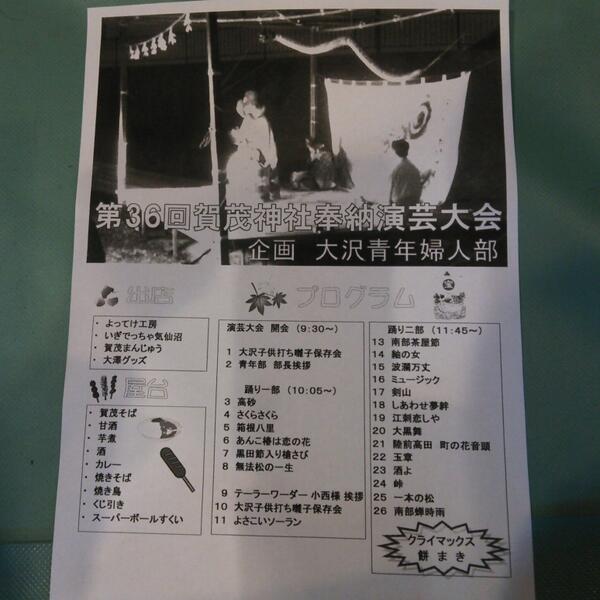 第36回賀茂神社奉納演芸大会
企画 大沢青年婦人部
出店
・よってけ工房
・いぎでっちゃ気仙沼
・賀茂まんじゅう
・大澤グッズ
屋台
・賀茂そば
・甘酒
・芋煮
・酒
・カレー
・焼きそば
・焼き鳥
・くじ引き
・スーパーボールすくい
プログラム
演芸大会 開会 (9:30~)
1 大沢子供打ち囃子保存会
2 青年部 部長挨拶
踊り一部 (10:05~)
3 高砂
4 さくらさくら
5 箱根八里
6 あんこ椿は恋の花
7 黒田節入り槍さび
8 無法松の一生
9 テーラーワーダー 小西様 挨拶
10 大沢子供打ち囃子保存会
11 よさこいソーラン
踊り二部 (11:45~)
13 南部茶屋節
14 紬の女
15 波瀾万丈
16 ミュージック
17 剣山
18 しあわせ夢絆
19 江刺恋しや
20 大黒舞
21 陸前高田 町の花音頭
22 玉章
23 酒よ
24 峠
25 一本の松
26 南部蝉時雨
クライマックス
餅まき